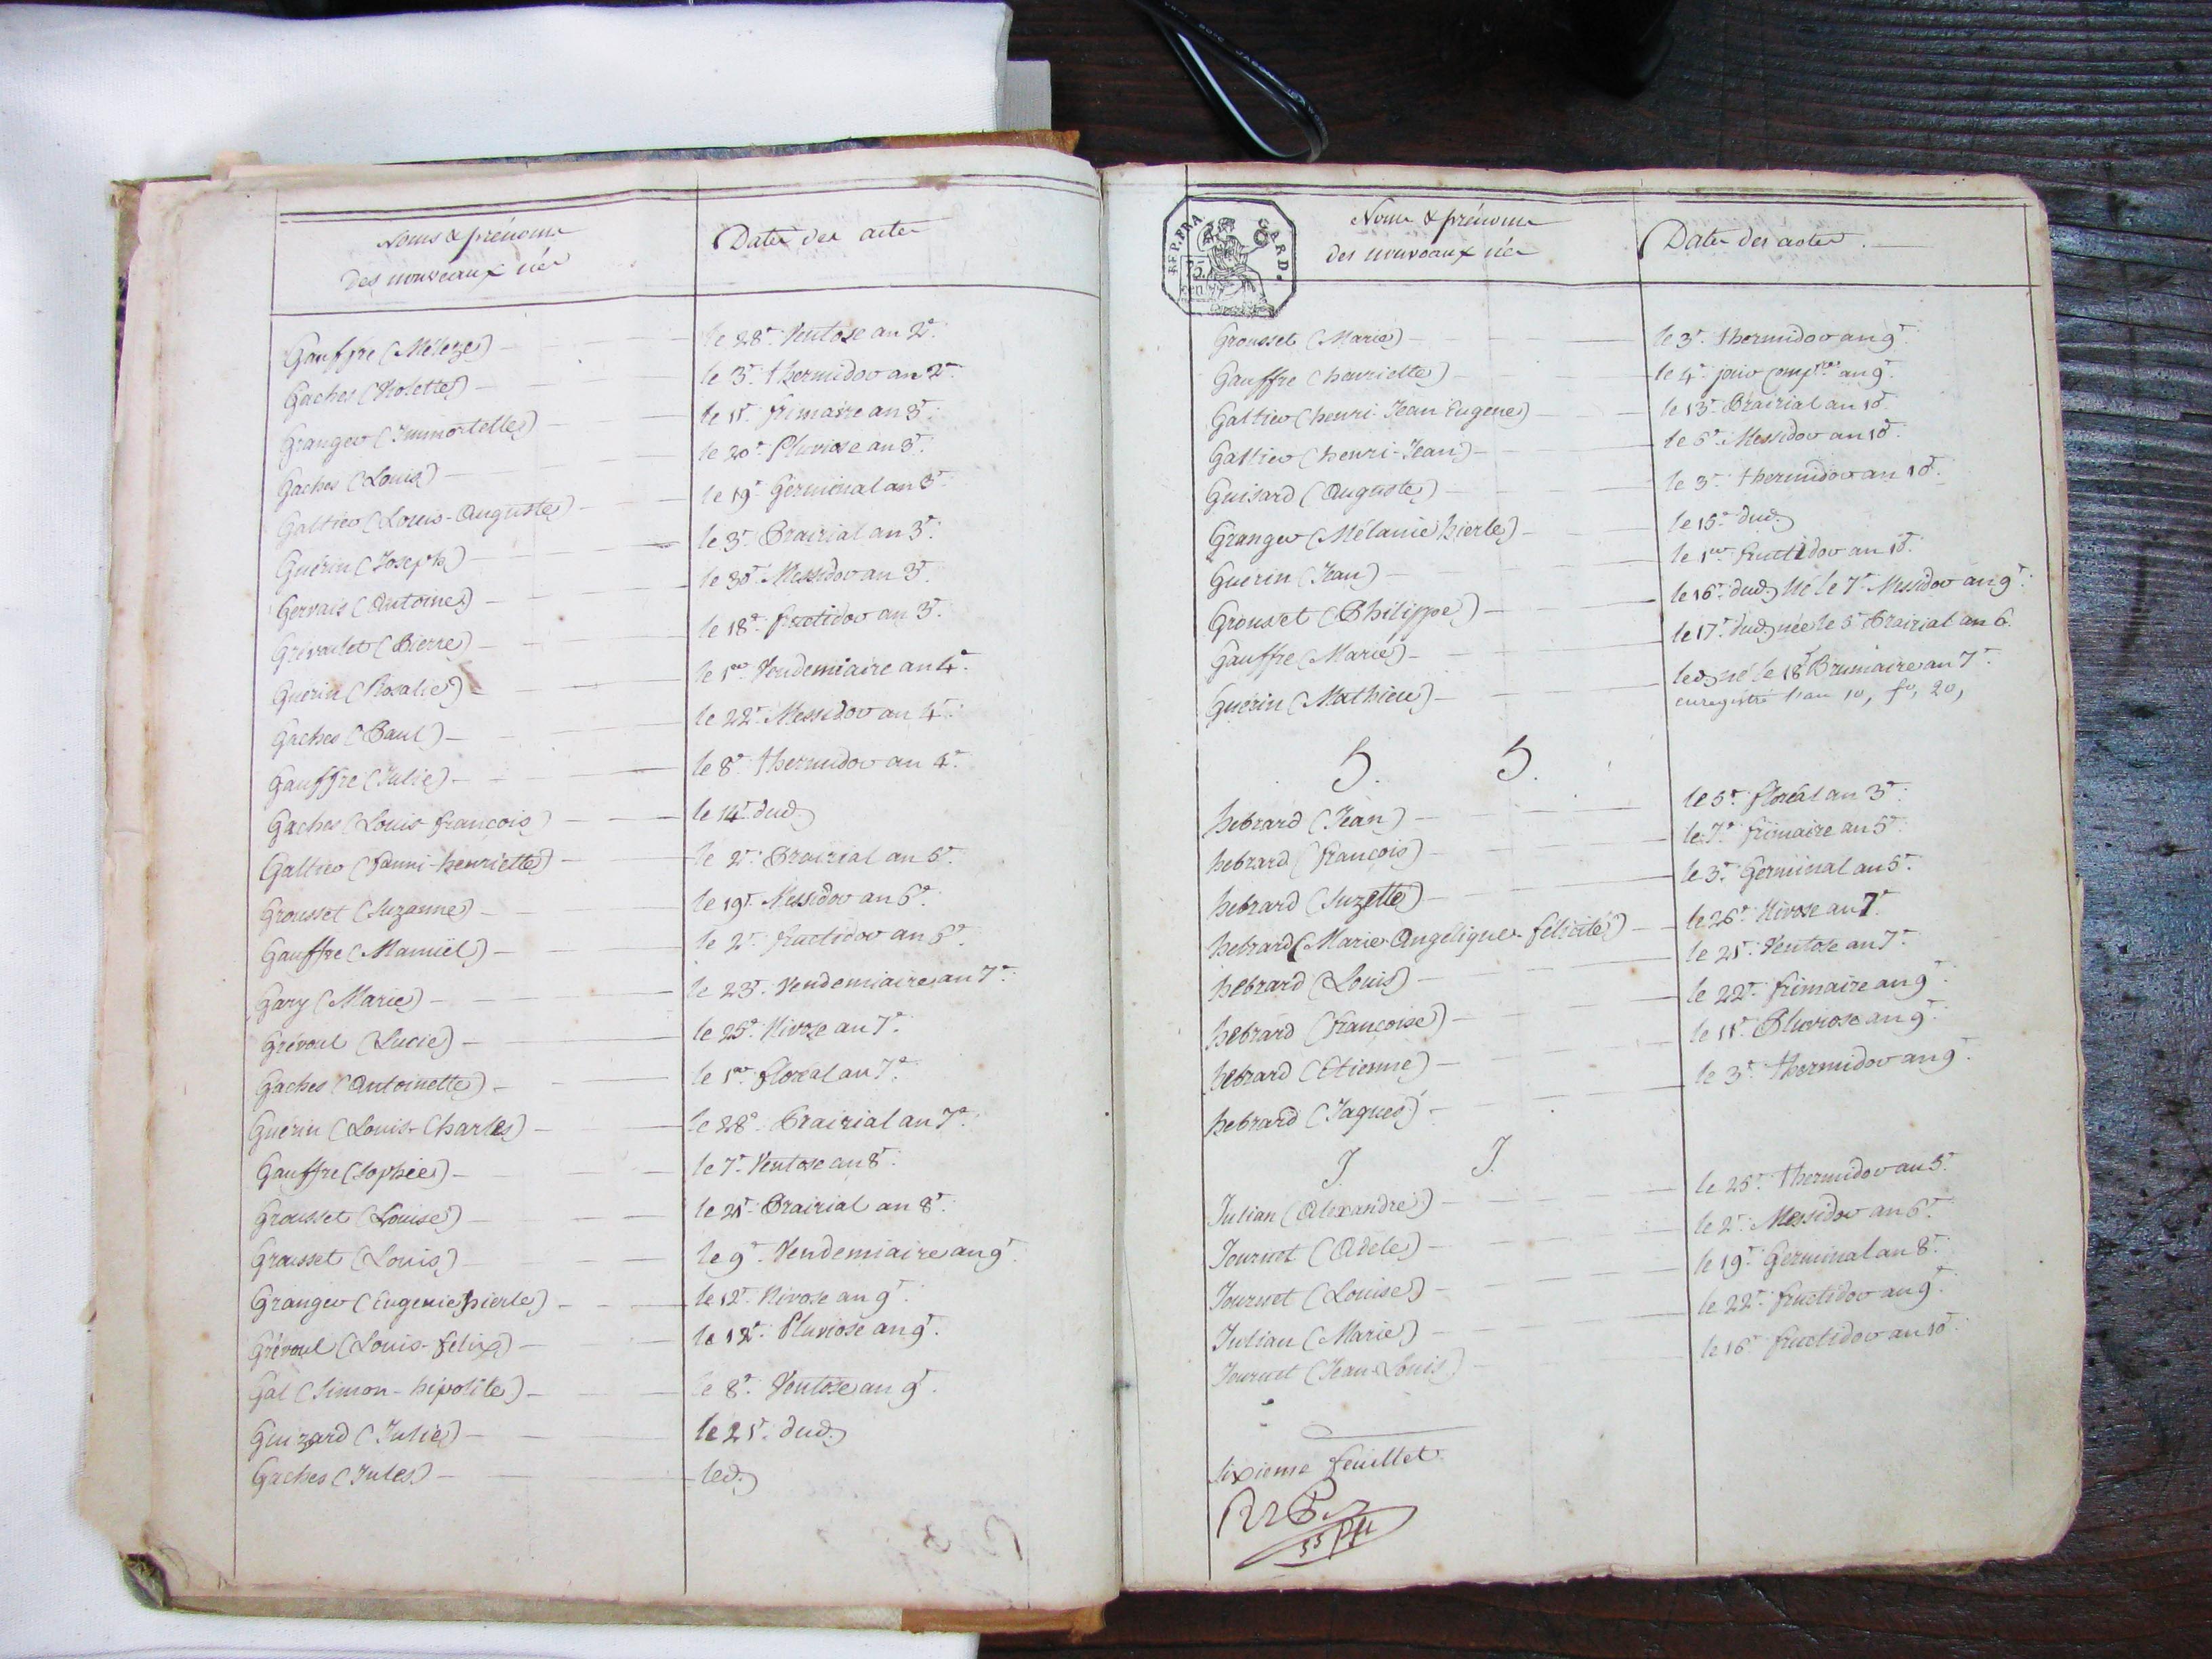 Noms & prénoms
Des nouveaux nés
Dates des actes
Gauffre (Méleze) le 28e Ventose an 2e.
Gaches (Violette) le 3e thermidor an 2e.
Granger (Immortelle) le 11e frimaire an 3e.
Gaches (Louis) le 20e Pluviose an 3e.
Galtier (Louis-Auguste) le 19e Germinal an 3e.
Guérin (Joseph) le 3e Prairial an 3e.
Gervais (Antoine) le 30e Messidor an 3e.
(Pierre) le 18e fructidor an 3e.
Guérin (Rosalie) le 1er Vendemiaire an 4e.
Gaches (Paul) le 22e Messidor an 4e.
Gauffre (Julie) le 8e thermidor an 4e.
Gaches (Louis françois) le 14e dud.
Galtier (fanni-henriette) le 2e Prairial an 6e.
Grousset (Suzanne) le 19e Messidor an 6e.
Gauffre (Manuël) le 2e fructidor an 6e.
Gary (Marie) le 23e Vendemiaire an 7e.
Grévoul (Lucie) le 25e Nivose an 7e.
Gaches (Antoinette) le 1er floréal an 7e.
Guérin (Louis-Charles) le 28e Prairial an 7e.
Gauffre (Sophie) le 7e Ventose an 8e.
Grousset (Louise) le 21e Prairial an 8e.
Grousset (Louis) le 9e Vendemiaire an 9e
Granger (Eugenie hierle) le 12e Nivose an 9e.
Grévoul (Louis-felix) le 12e Pluviose an 9e.
Gal (Simon-hipolite) le 8e Ventose an 9e.
Guizard (Julie) le 21e dud.
Gaches (Jules) led.
REP. FRA
GARD.
Noms & prénoms
des nouveaux nés
Dates des actes.
Grousset (Marie) le 3e thermidor an 9e
Gauffre (henriette) le 4e jour Compre an 9e.
Galtier (henri-Jean Eugene) le 13e Prairial an 10e
Galtier (henri-Jean) le 6e Messidor an 10e.
Guisard (Auguste) le 3e thermidor an 10e.
Granger (Mélanie hierle) le 15e dud.
Guérin (Jean) le 1er fructidor an 10e.
Grousset (Philippe) le 16e dud. Né le 7e Messidor an 9e.
Gauffre (Marie) le 17e dud. née le 5e Prairial an 6.
Guérin (Mathieu) led. né le 18e Brumaire an 7e.
enregistré l'an 10, fo, 20,
H. H.
hebrard (Jean) le 5e floréal an 3e.
hebrard (françois) le 7e frimaire an 5e.
hebrard (Suzette) le 3e Germinal an 5e.
hebrard (Marie Angelique félicité) le 26e Nivose an 7e
hebrard (Louis) le 21e Ventose an 7e.
hebrard (françoise) le 22e frimaire an 9e
hebrard (Etienne) le 11e Pluviose an 9e.
hebrard (Jaques) le 3e thermidor an 9e.
J. J.
Julian (Alexandre) le 25e thermidor an 5e.
Journet (Adele) le 2e Messidor an 6e.
Journet (Louise) le 19e Germinal an 8e.
Julian (Marie) le 22e fructidor an 9e.
Journet (Jean-Louis) le 16e fructidor an 10e.
Sixieme feuillet